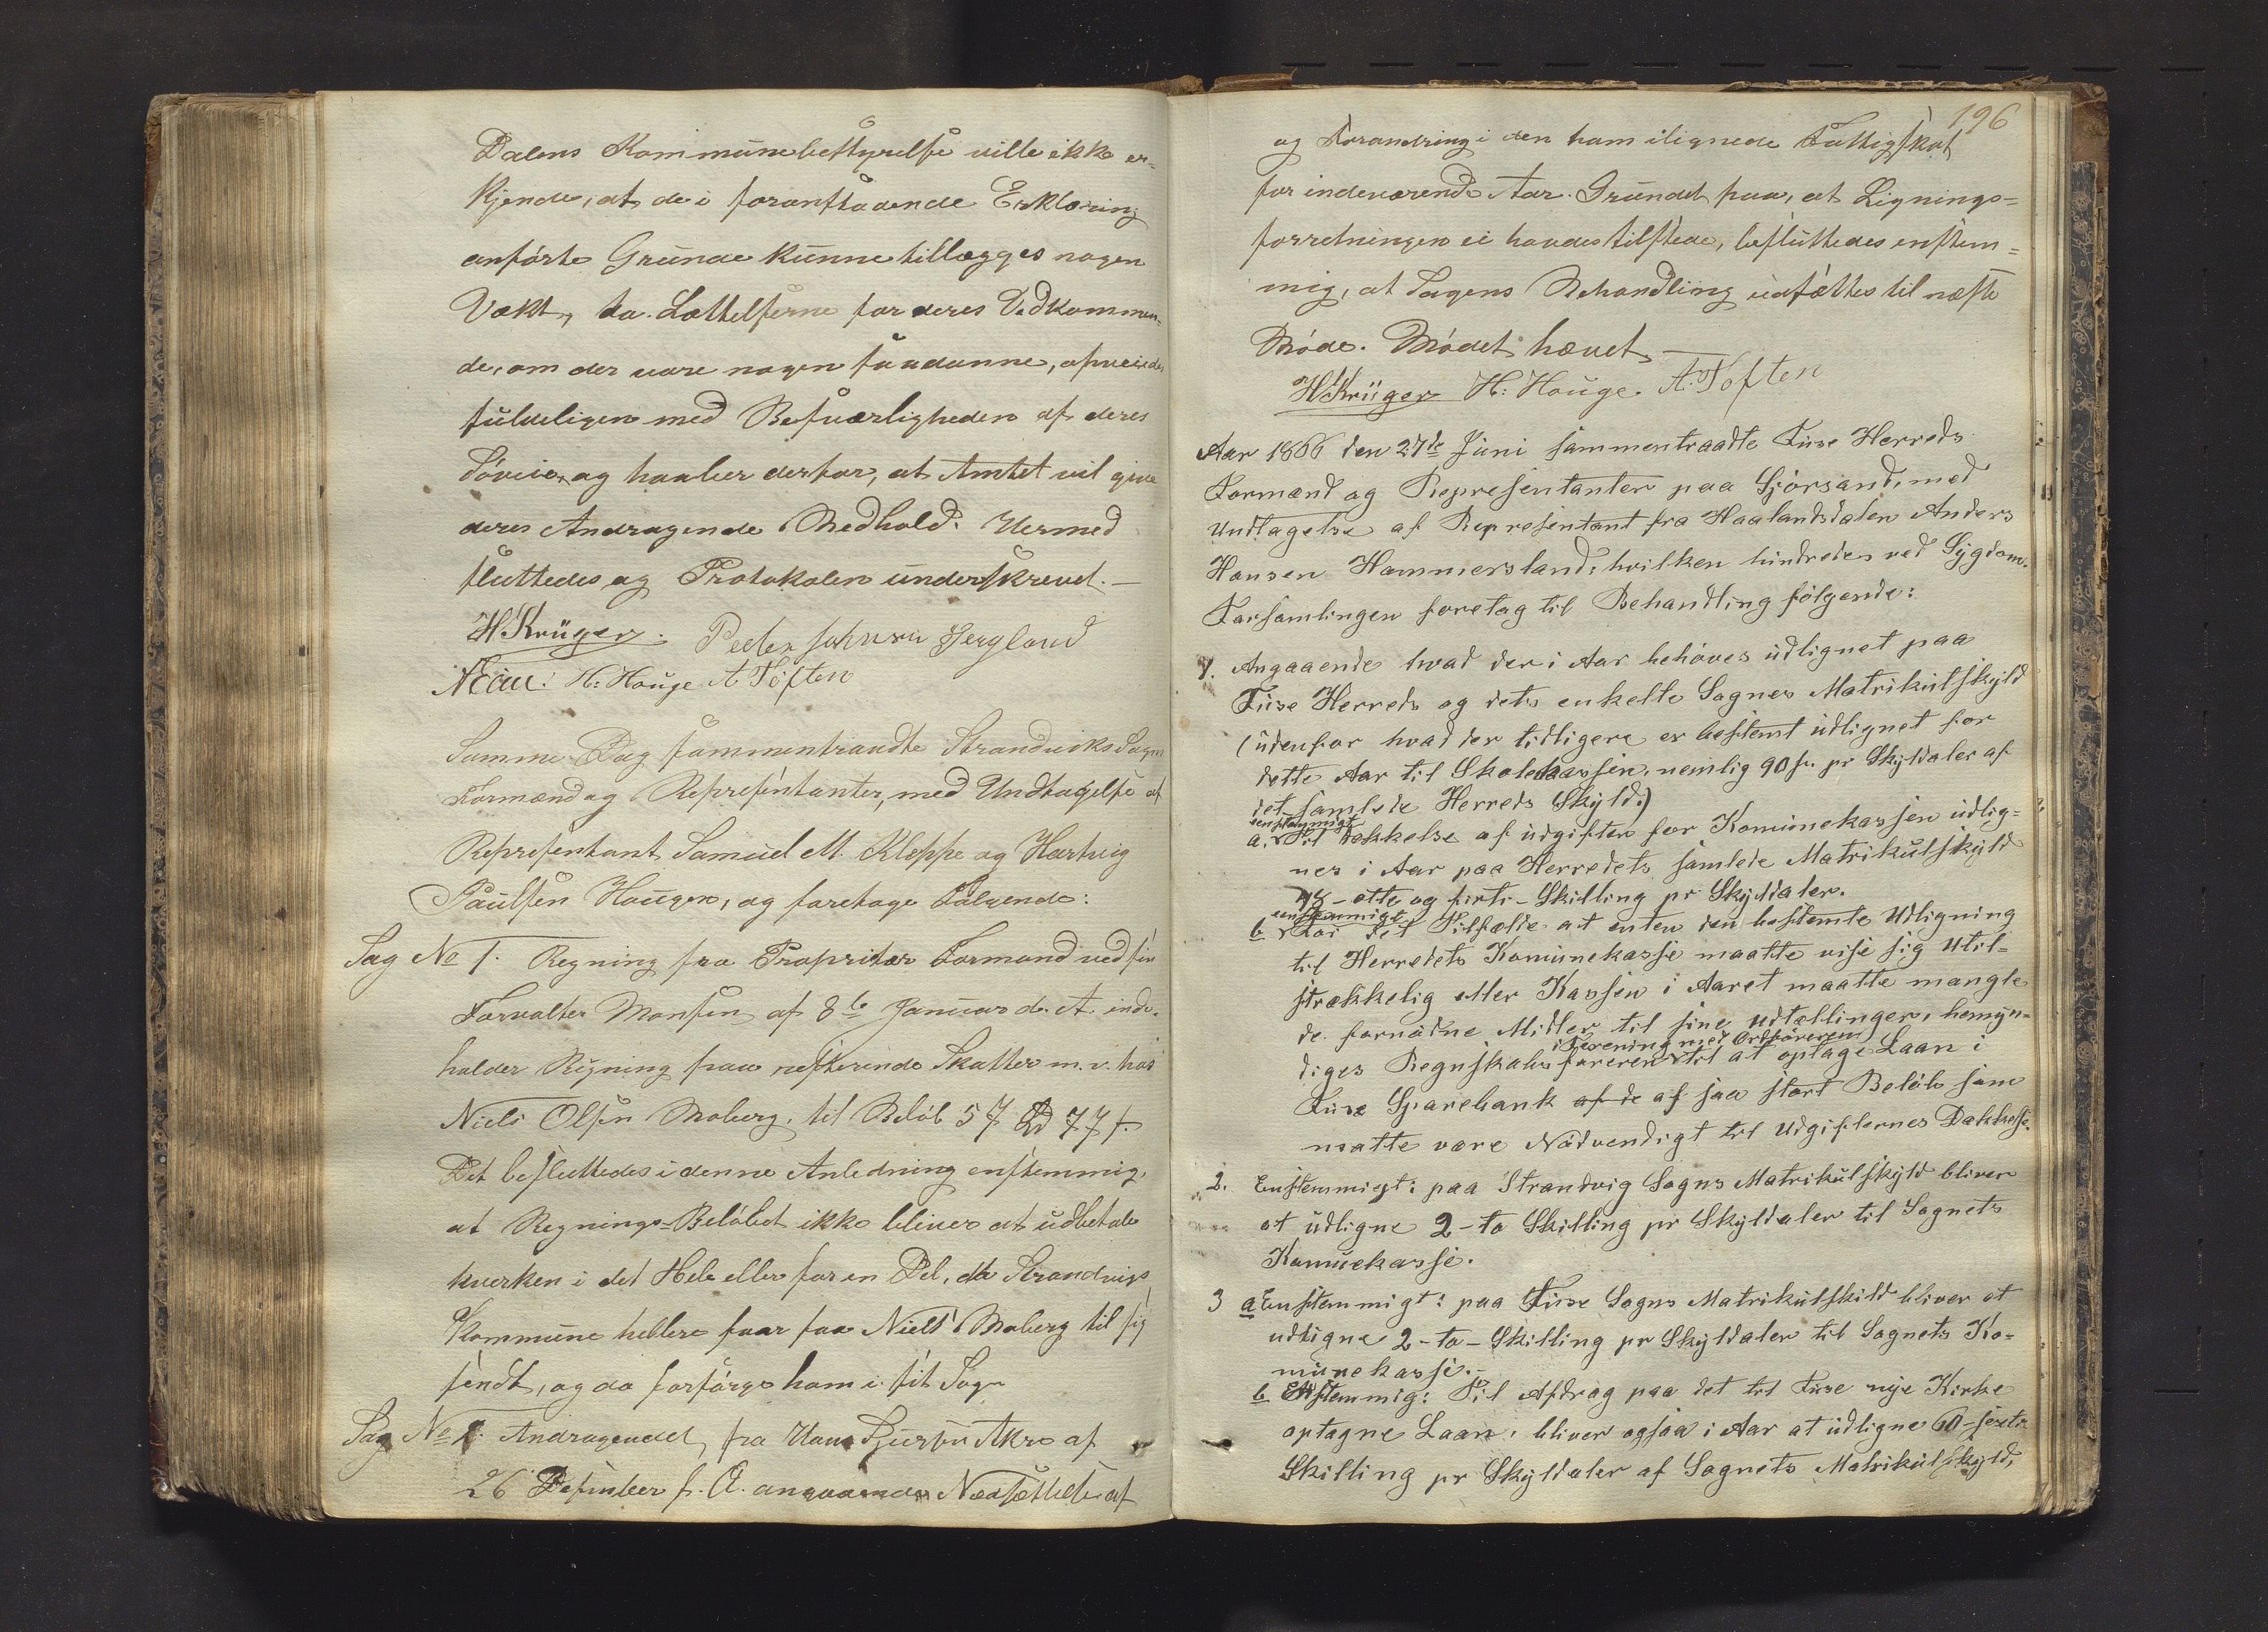 Dalens Kommunebestyrelse ville ikke er-
kjende, at de i foranstaaende Erklæring
anførte Grunde kunne tillægges nogen
Vækt, da Lættelserne for deres Vedkommen-
de, om der vare nogen saadanne, opveiedes
fuldeligen med Besværligheden af deres
Søveie, og haaber derfor, at Amtet vil give
deres Andragende Medhold. Hermed
sluttedes og Protokolen underskrevet. —
H Krüger. Peder Johnsen Bergland
N Eide. H: Hauge A Tøften
Samme Dag sammentraadte Strandviks Sogns
Formænd og Repræsentanter, med Undtagelse af
Repræsentant Samuel M. Kleppe og Hartvig
Paulsen Haugen, og foretoge Følgende:
Sag No 1. Regning fra Propritær Formand ved sin
Forvalter Monsen af 8de Januar d. A. inde-
holder Regning paa resterende Skatter m. v. hos
Niels Olsen Moberg, til Beløb 57 Spd 77 s.
Det besluttedes i denne Anledning enstemmig,
at Regnings-Beløbet ikke bliver at udbetale
hverken i det Hele eller for en Del, da Strandvigs
Kommune hellere faar faa Niels Moberg til sig
sendt, og da forsørge ham i sit Sogn
Sag No 2. Andragendet fra Hans Sjursen Akre af
26 December f. A. angaaende Nedsættelse af
196
og Forandring i den ham ilignede Fattigskat
for indeværende Aar. Grundet paa, at Lignings-
forretningen ei havdes tilstede, besluttedes enstem-
mig, at Sagens Behandling udsættes til næste
Møde. Mødet hævet
H Krüger H: Hauge. A. Tøften
Aar 1866 den 27de Juni sammentraadte Fuse Herreds
Formænd og Representanter paa Gjørsand, med
Undtagelse af Representant fra Haalandsdalen Anders
Hansen Hammersland, hvilken hindredes ved Sygdom.
Forsamlingen foretog til Behandling følgende:
1. Angaaende hvad der i Aar behøves udlignet paa
Fuse Herreds og dets enkelte Sognes Matrikulskyld
(udenfor hvad der tidligere er bestemt udlignet for
dette Aar til Skolekassen, nemlig 90 s. pr Skyldaler af
det samlede Herreds Skyld.)
enstemmigt
a. Til Dækkelse af udgifter for Komunekassen udlig-
nes i Aar paa Herredets samlede Matrikulskyld
48 - otte og firti - Skilling pr Skyldaler.
enstemmigt
b For det Tilfælde at enten den bestemte Udligning
til Herredets Komunekasse maatte vise sig util-
strækkelig eller Kassen i Aaret maatte mangle
de fornødne Midler til sine udtællinger, bemyn-
i Forening med Ordføreren
diges Regnskabsføreren til at optage Laan i
Fuse Sparebank af de af saa stort Beløb som
matte være Nødvendigt til Udgifternes Dækkelse.
2. Enstemmigt: paa Strandvig Sogns Matrikulskyld bliver
at udligne 2 - to Skilling pr Skyldaler til Sognets
Komuekasse.
3 a Enstemmigt: paa Fuse Sogns Matrikulskild bliver at
udligne 2 - to - Skilling pr Skyldaler til Sognets Ko-
munekasse. -
b Enstemmig: Til Afdrag paa det til Fuse nye Kirke
optagne Laan, bliver ogsaa i Aar at udligne 60 - sexti
Skilling pr Skyldaler af Sognets Matrikulskyld,